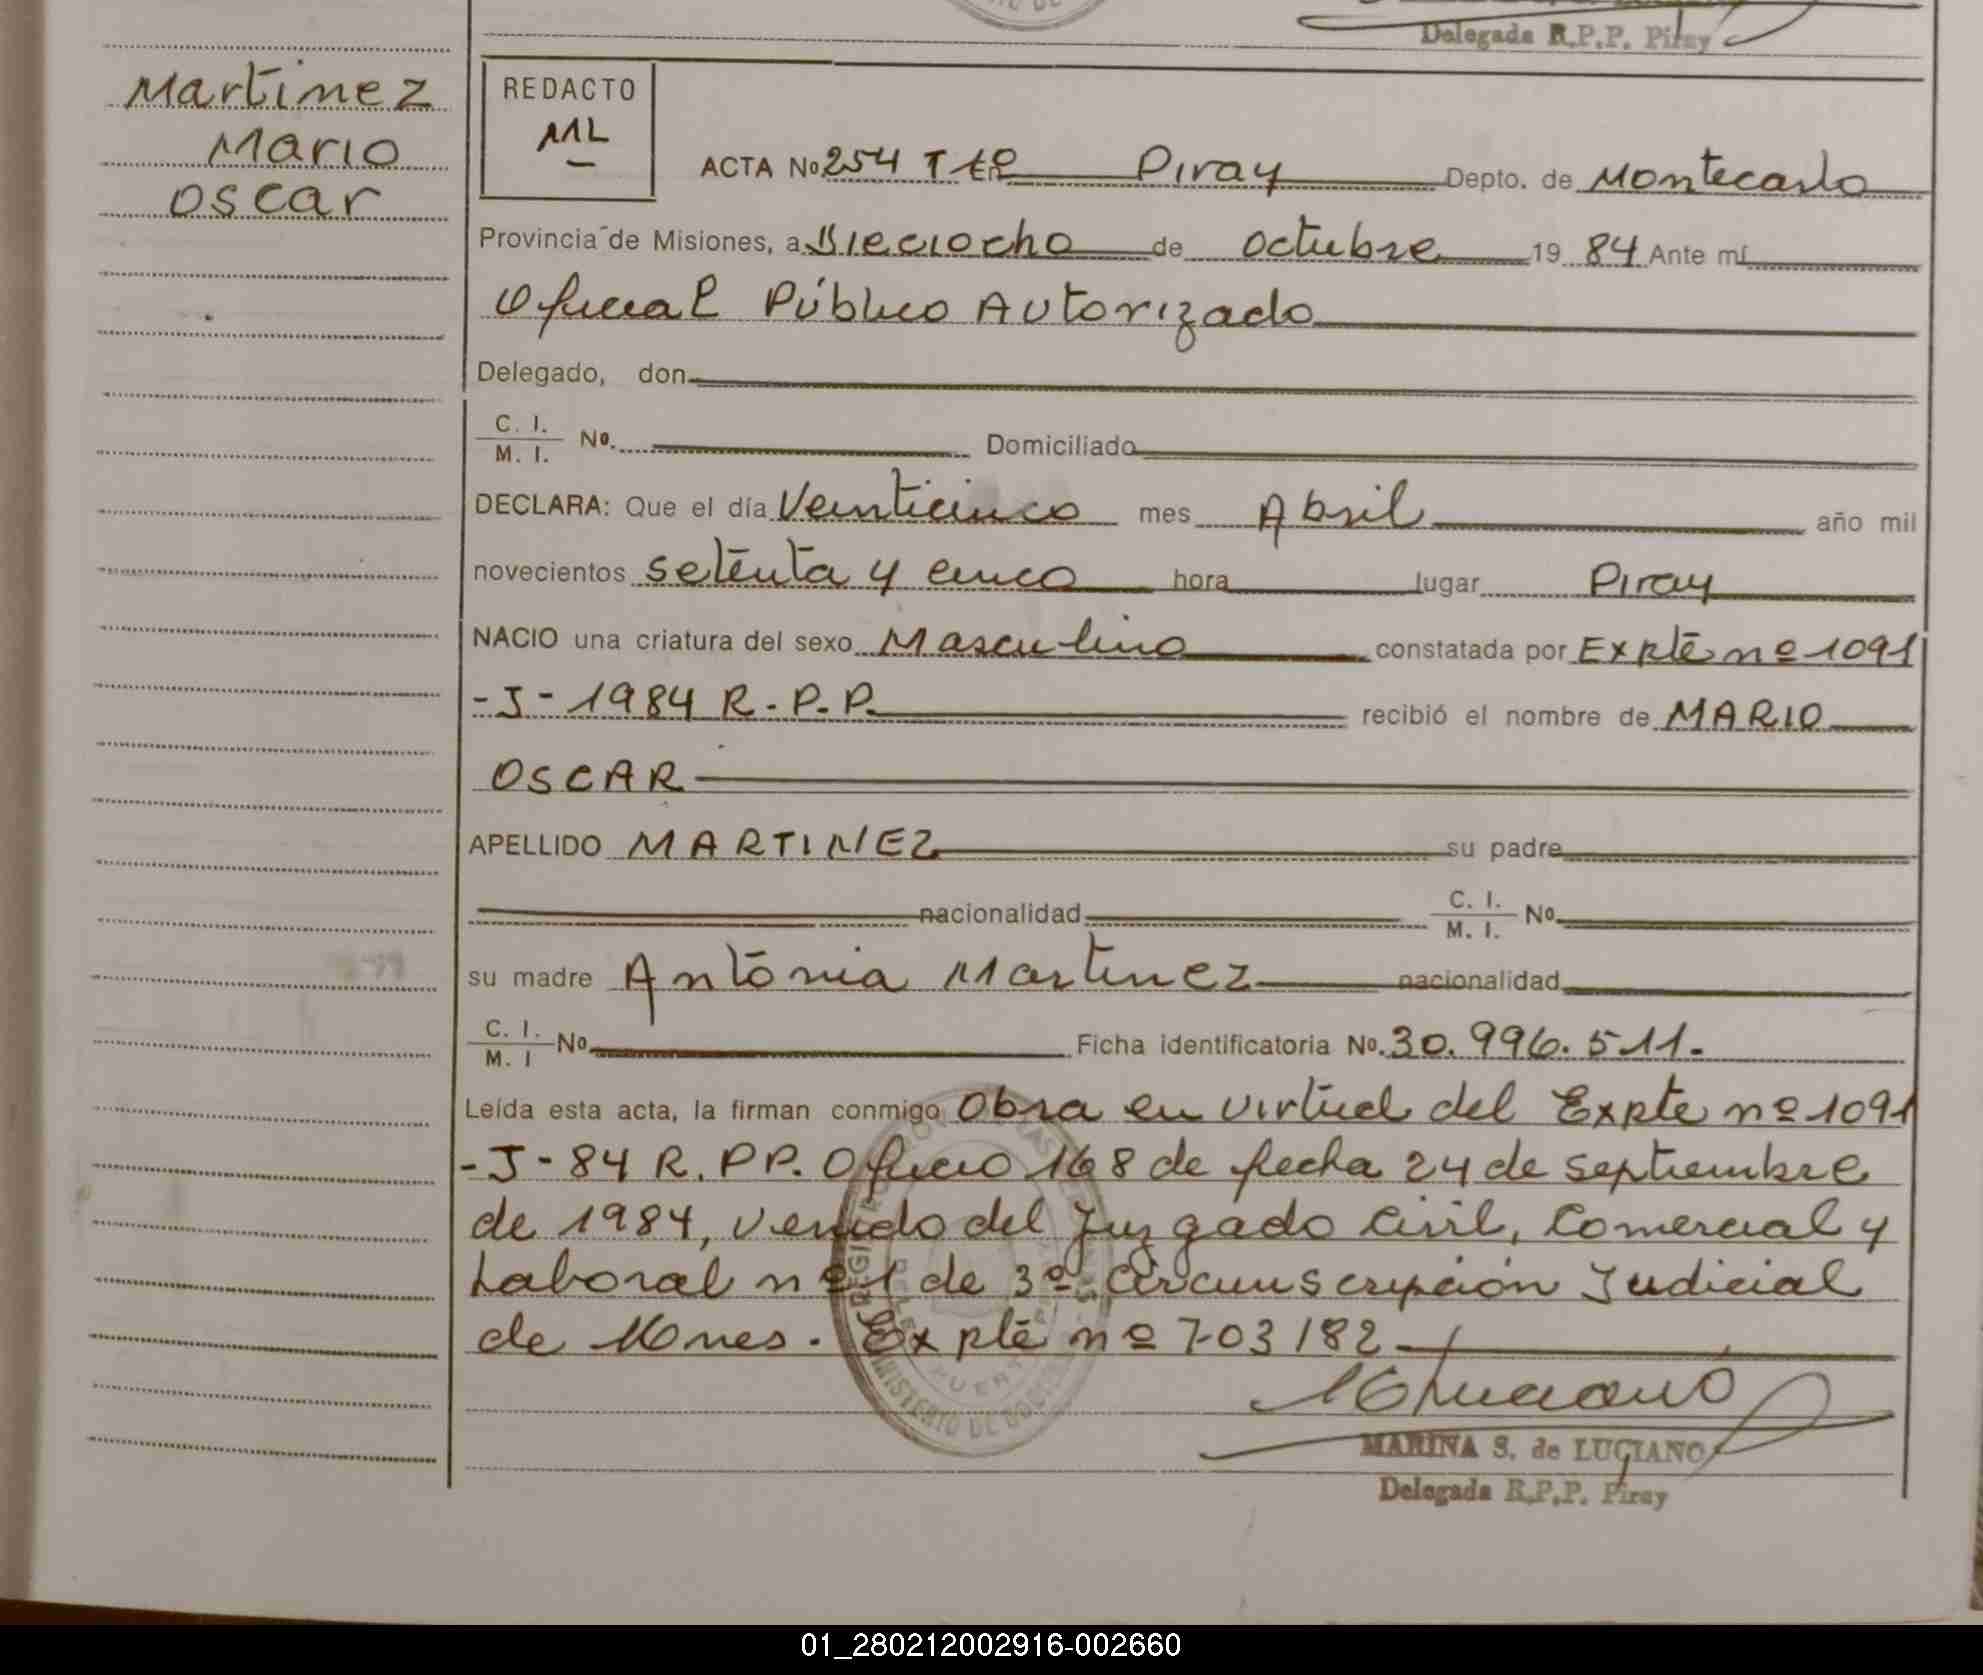 Delegada R.P.P. Piray
Martinez
Mario
Oscar
REDACTO
ML
ACTA Nº 254 T Piray Depto. de Montecarlo
Provincia de Misiones, a Dieciocho de octubre 19 84 Ante mí
Oficial Público Autorizado
Delegado, don
C. I.
M. I. Nº. Domiciliado
DECLARA: Que el día Veinticinco mes Abril año mil
novecientos setenta y cinco hora lugar Piray
NACIO una criatura del sexo Masculino constatada por Expte nº 1091
-J- 1984 R.P.P. recibió el nombre de MARIO
OSCAR
APELLIDO MARTINEZ su padre
nacionalidad C. I. M. I. Nº
su madre Antonia Martinez nacionalidad
C. I. M. I Nº Ficha identificatoria Nº. 30.996.511.
Leída esta acta, la firman conmigo Obra en virtud del Expte nº 1091
-J- 84 R.PP. Oficio 168 de fecha 24 de septiembre
de 1984, venido del Juzgado Civil, Comercial y
Laboral nº 1 de 3º Circunscripción Judicial
de Mnes. Expte nº 703/82
MARINA S. de LUCIANO
Delegada R.P.P. Piray
01_280212002916-002660